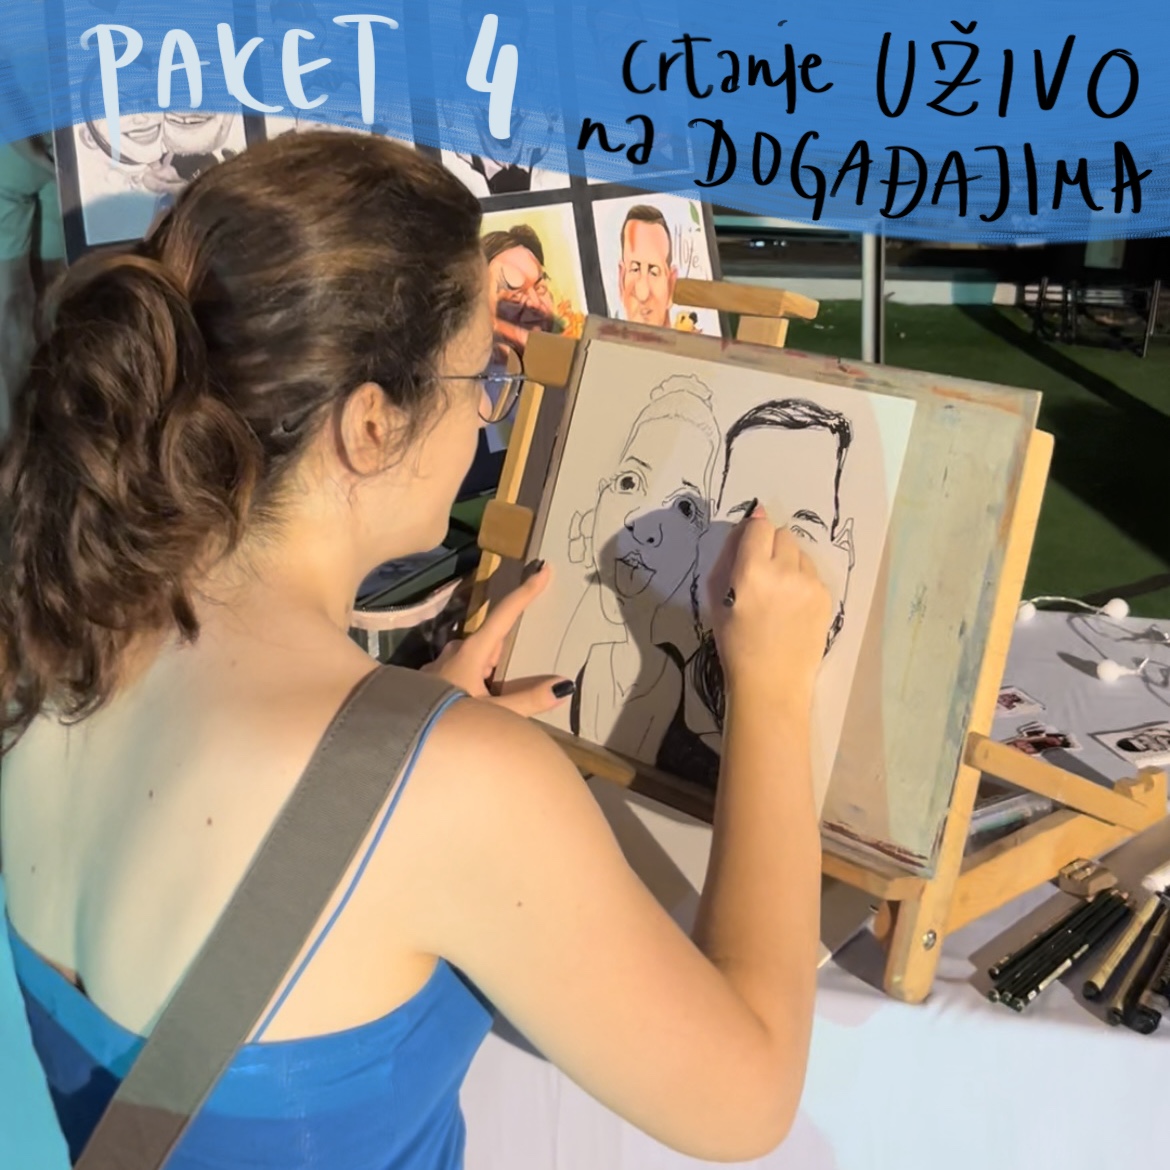 PAKET 4
crtanje UŽIVO
na DOGAĐAJIMA
Može.